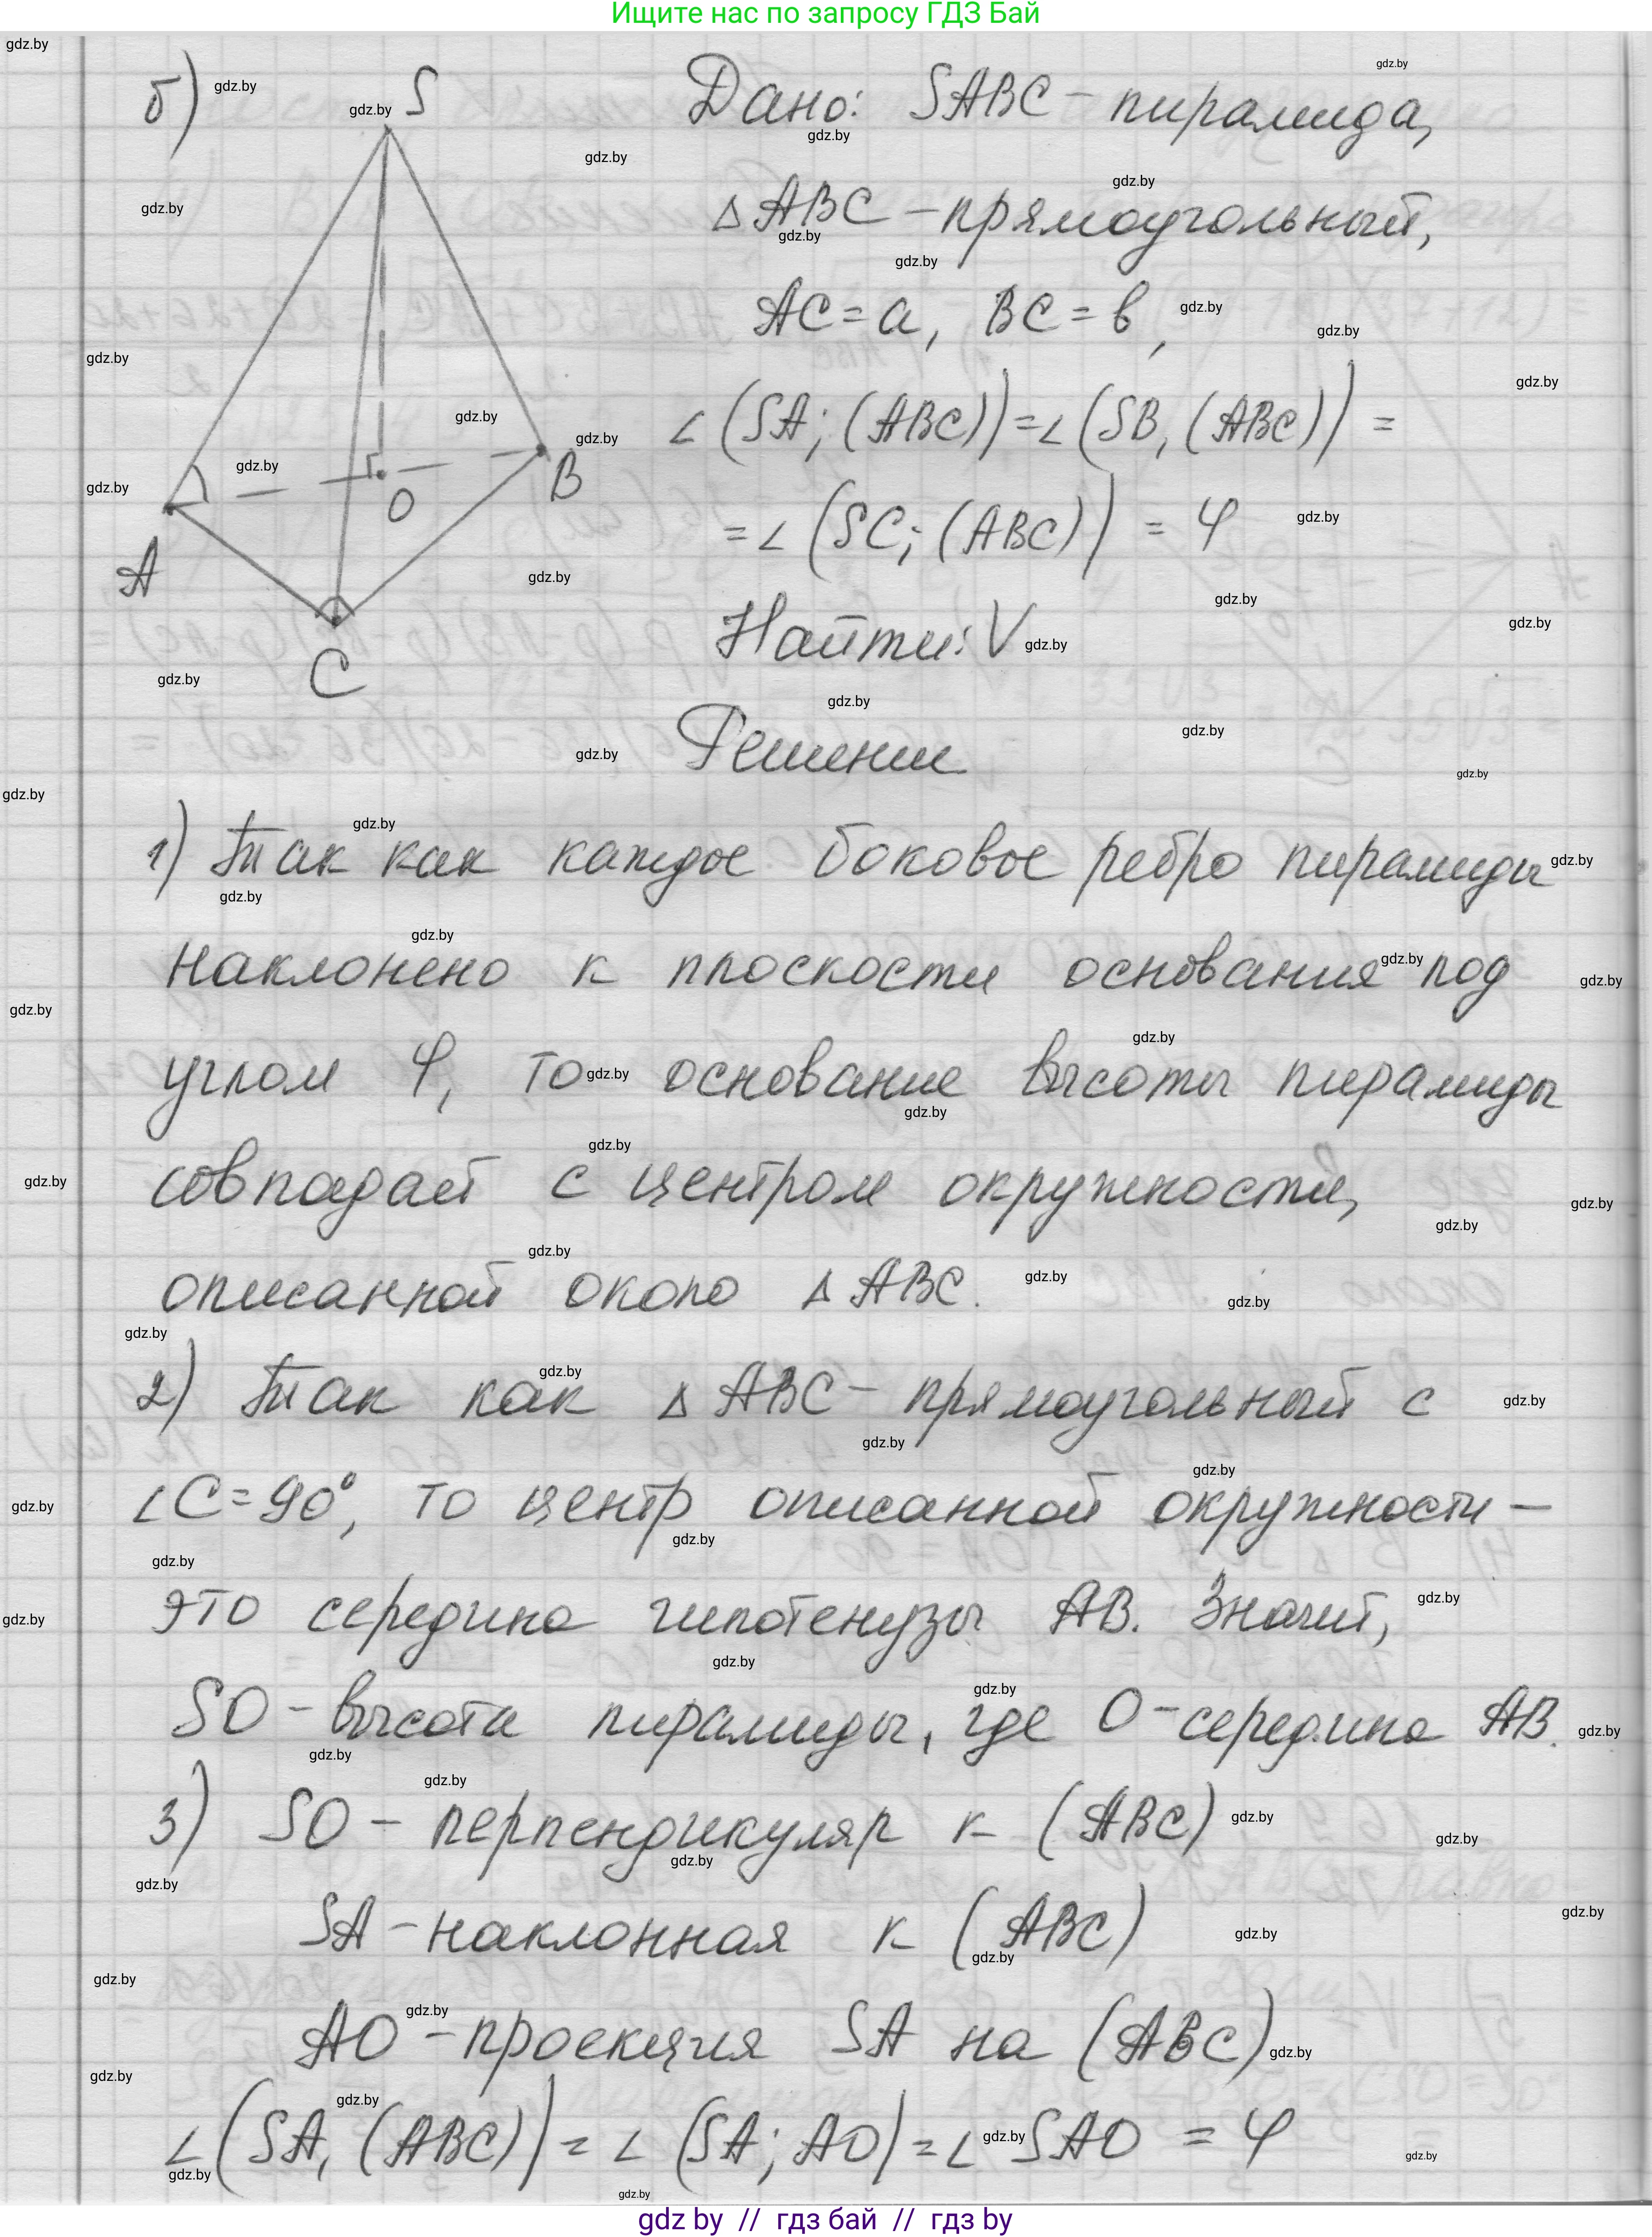 Ищите нас по запросу ГДЗ Бай
б)
S
A
O
B
C
Дано: SABC – пирамида,
△ABC – прямоугольный,
AC = a, BC = b,
∠(SA; (ABC)) = ∠(SB, (ABC)) =
= ∠(SC; (ABC)) = φ
Найти: V
Решение
1) Так как каждое боковое ребро пирамиды
наклонено к плоскости основания под
углом φ, то основание высоты пирамиды
совпадает с центром окружности,
описанной около △ABC.
2) Так как △ABC – прямоугольный с
∠C = 90°, то центр описанной окружности –
это середина гипотенузы AB. Значит,
SO – высота пирамиды, где O – середина AB.
3) SO – перпендикуляр к (ABC)
SA – наклонная к (ABC)
AO – проекция SA на (ABC)
∠(SA, (ABC)) = ∠(SA; AO) = ∠SAO = φ
gdz.by
gdz by // гдз бай // гдз by